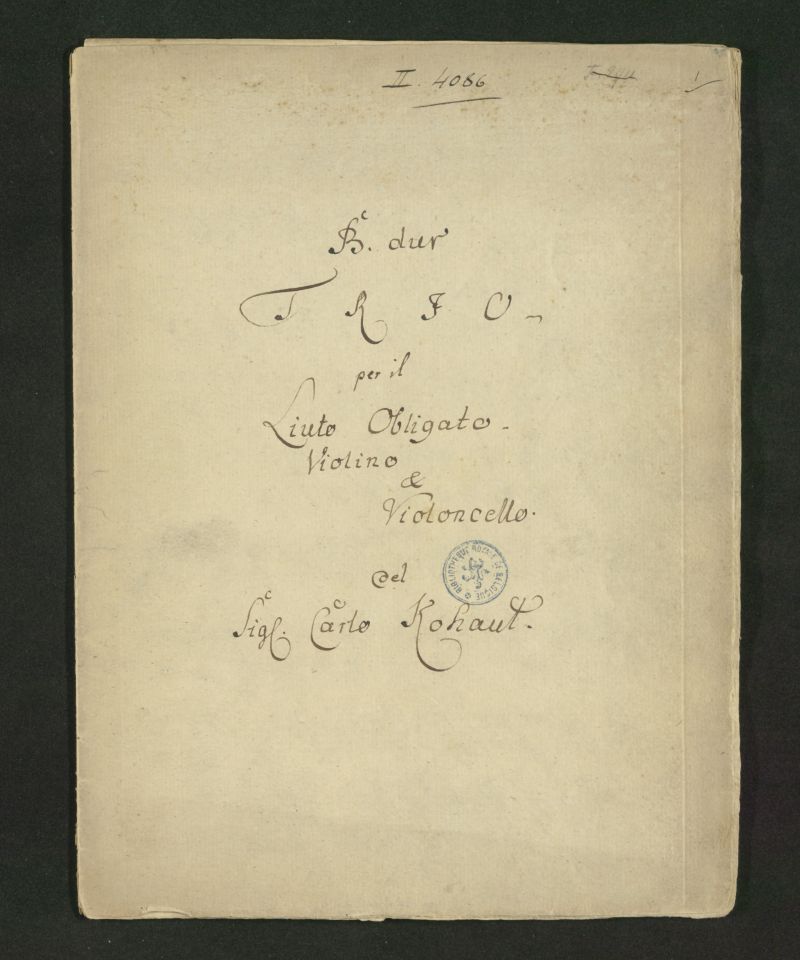 II. 4086
B. dur
TRIO
per il
Liuto Obligato.
Violino
&
Violoncello.
del
BIBLIOTHEQUE ROYALE DE BELGIQUE
Sigl. Carlo Kohaut.